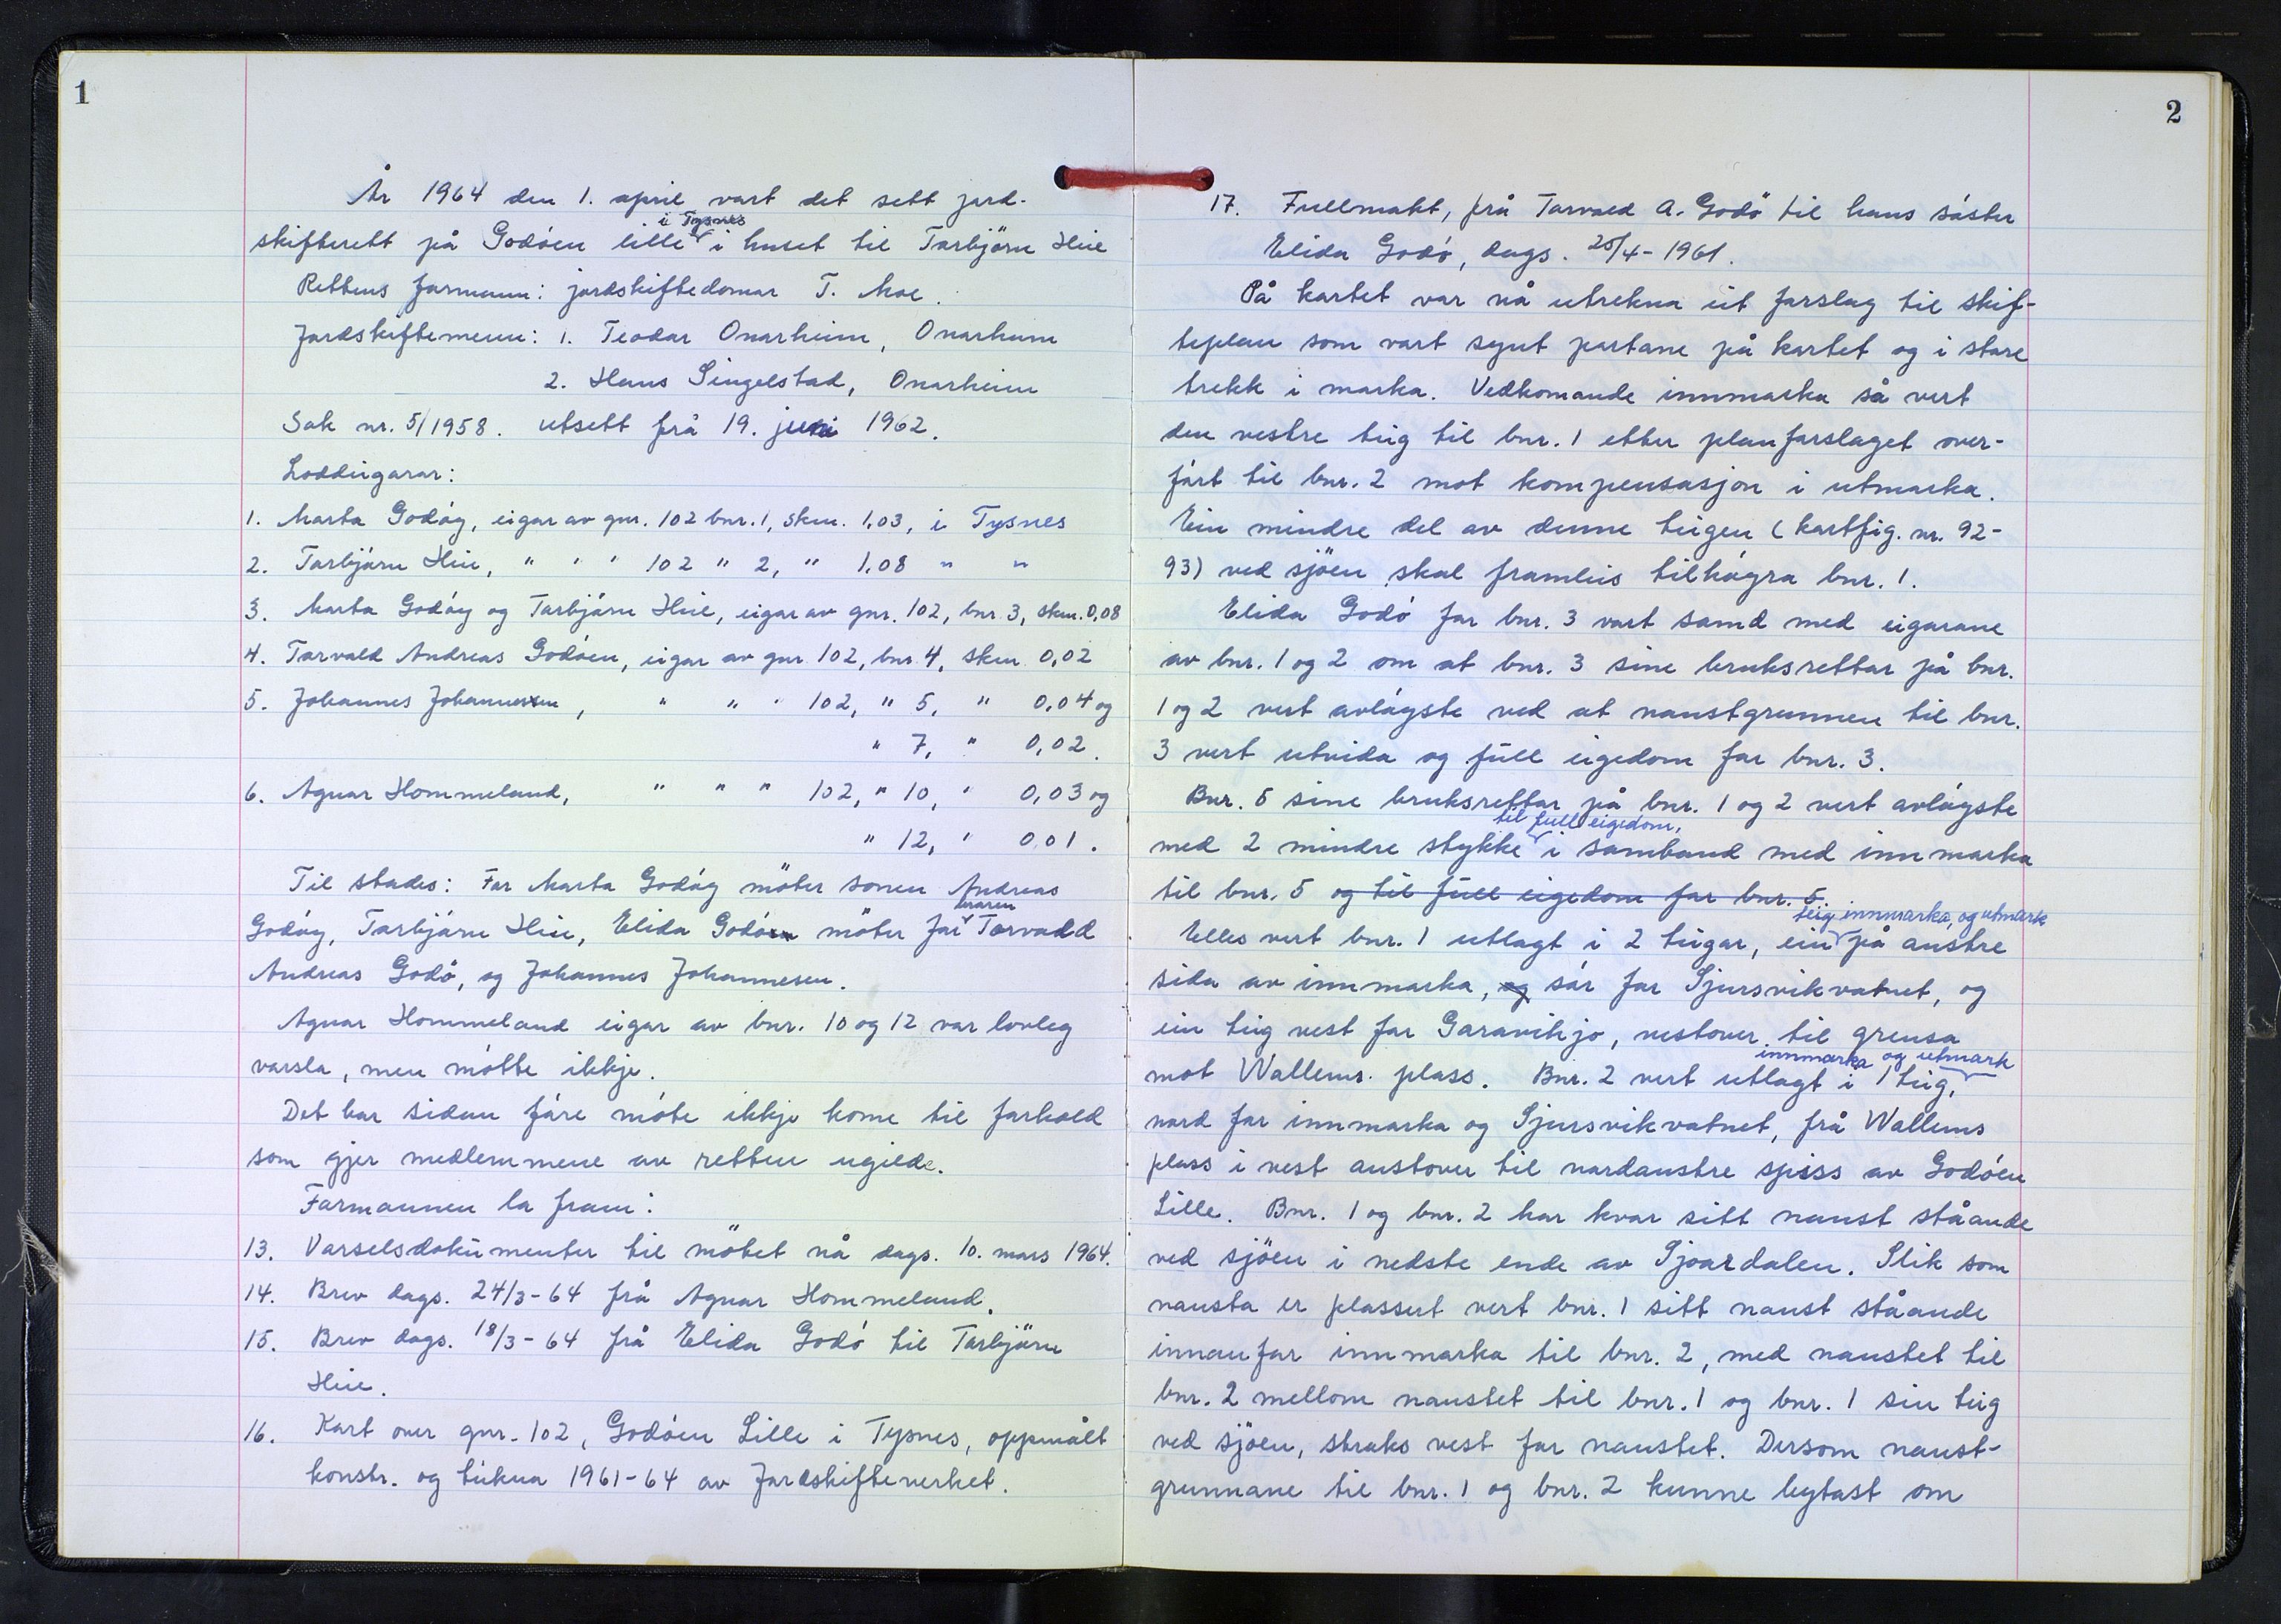 1
År 1964 den 1. april vart det sett jord-
skifterett på Godöen lille i Tysnes i huset til Torbjörn Hiie
Rettens formann: jordskiftedomar T. Moe.
Jordskiftemenn: 1. Teodor Onarheim, Onarheim
2. Hans Singelstad, Onarheim
Sak nr. 5/1958. utsett frå 19. juni 1962.
Loddeigarar:
1. Marta Godöy, eigar av gnr. 102 bnr. 1, skm. 1,03, i Tysnes
2. Torbjörn Hiie, " " " 102 " 2, " 1,08 " "
3. Marta Godöy og Torbjörn Hiie, eigar av gnr. 102, bnr. 3, skm. 0,08
4. Torvald Andreas Godöen, eigar av gnr. 102, bnr. 4, skm. 0,02
5. Johannes Johannesen, " " " 102, " 5, " 0,04 og
" 7, " 0,02.
6. Agnar Hommeland, " " " 102, " 10, " 0,03 og
" 12, " 0,01.
Til stades: For Marta Godöy möter sonen Andreas
Godöy, Torbjörn Hiie, Elida Godö möter for broren Torvald
Andreas Godö, og Johannes Johannesen.
Agnar Hommeland eigar av bnr. 10 og 12 var lovleg
varsla, men mötte ikkje.
Det har sidan förre möte ikkje kome til forhold
som gjer medlemmene av retten ugilde.
Formannen la fram:
13. Varselsdokumenter til mötet nå dags. 10. mars 1964.
14. Brev dags. 24/3-64 frå Agnar Hommeland.
15. Brev dags. 18/3-64 frå Elida Godö til Torbjörn
Hiie.
16. Kart over gnr. 102, Godöen Lille i Tysnes, oppmålt
konstr. og teikna 1961-64 av Jordskifteverket.
2
17. Fullmakt, frå Torvald A. Godö til hans söster
Elida Godö, dags. 25/4-1961.
På kartet var nå utrekna eit forslag til skif-
teplan som vart synt partane på kartet og i store
trekk i marka. Vedkomande innmarka så vert
den vestre teig til bnr. 1 etter planforslaget over-
fört til bnr. 2 mot kompensasjon i utmarka.
Ein mindre del av denne teigen (kartfig. nr. 92-
93) ved sjöen skal framleis tilhöyra bnr. 1.
Elida Godö for bnr. 3 vart samd med eigarane
av bnr. 1 og 2 om at bnr. 3 sine bruksrettar på bnr.
1 og 2 vert avlöyste ved at naustgrunnen til bnr.
3 vert utvida og full eigedom for bnr. 3.
Bnr. 5 sine bruksrettar på bnr. 1 og 2 vert avlöyste
med 2 mindre stykke til full eigedom, i samband med innmarka
til bnr. 5 og til full eigedom for bnr. 5.
Elles vert bnr. 1 utlagt i 2 teigar, ein teig innmarka, og utmark på austre
sida av innmarka, og sör for Sjursvikvatnet, og
ein teig vest for Garavikjo, vestover til grensa
mot Wallems plass. Bnr. 2 vert utlagt i 1 teig, innmarka og utmark
nord for innmarka og Sjursvikvatnet, frå Wallems
plass i vest austover til nordaustre spiss av Godöen
Lille. Bnr. 1 og bnr. 2 har kvar sitt naust ståande
ved sjöen i nedste ende av Sjoardalen. Slik som
nausta er plassert vert bnr. 1 sitt naust ståande
innanfor innmarka til bnr. 2, med naustet til
bnr. 2 mellom naustet til bnr. 1 og bnr. 1 sin teig
ved sjöen, straks vest for naustet. Dersom naust-
grunnane til bnr. 1 og bnr. 2 kunne bytast om